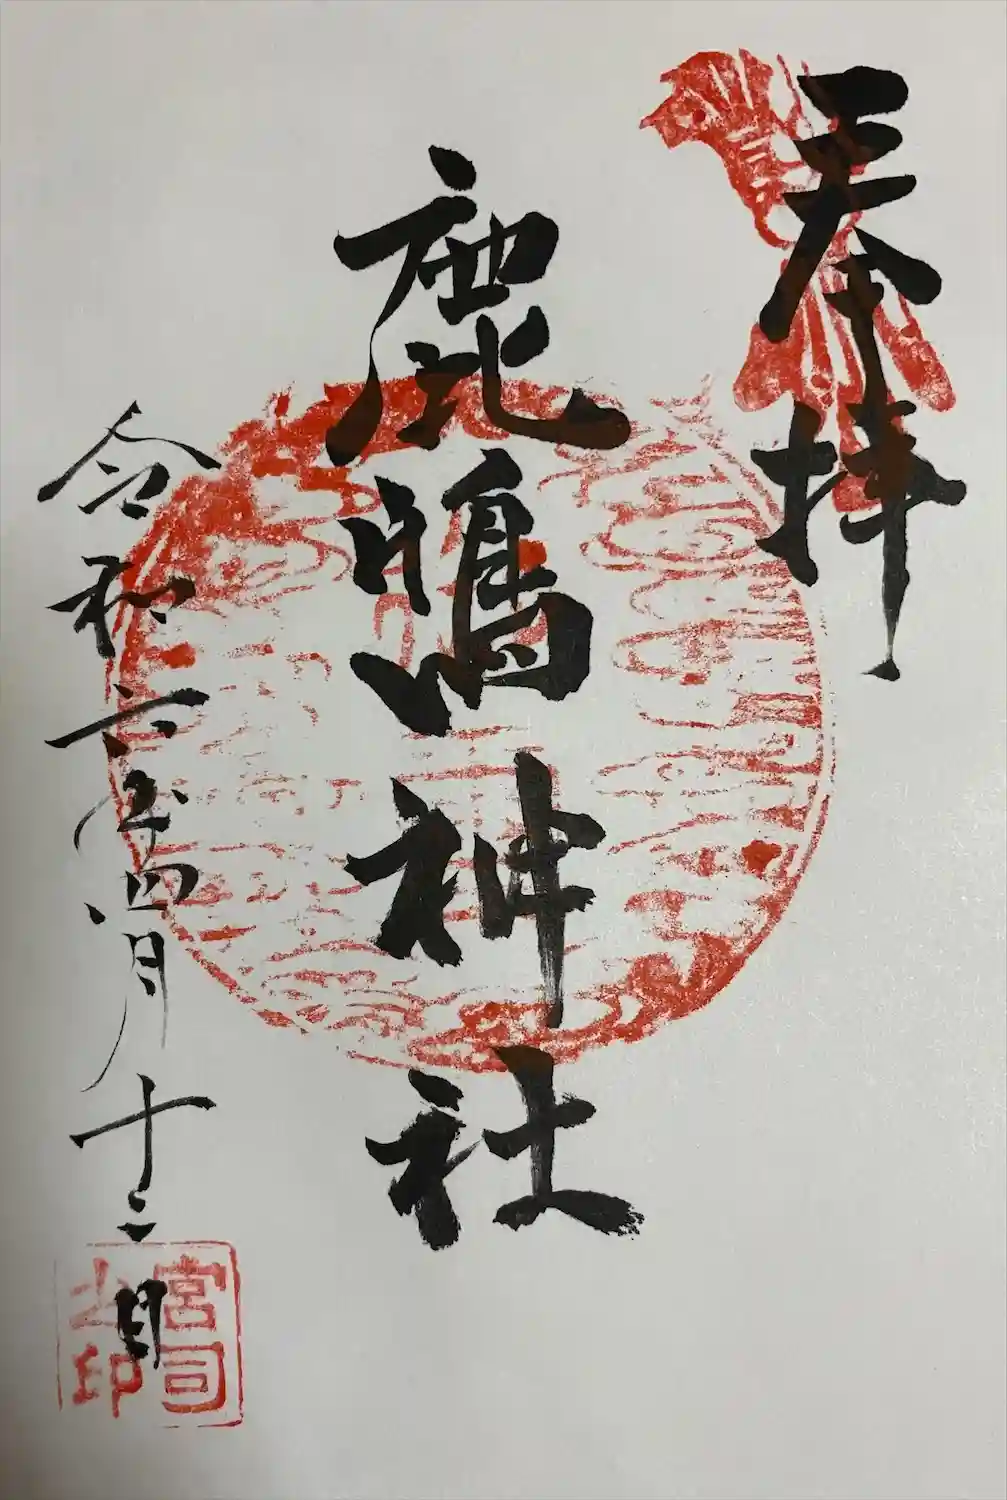 奉拝
鹿嶋神社
令和六年四月十二日
宮司
之印